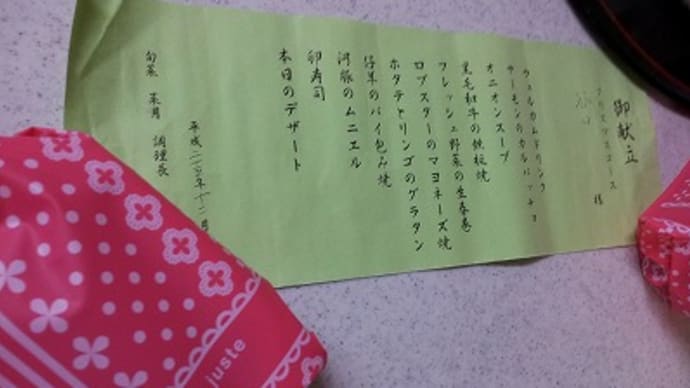 御献立
クリスマスコース
様
ウェルカムドリンク
サーモンのカルパッチョ
オニオンスープ
黒毛和牛の鉄板焼
フレッシュ野菜の生春巻
ロブスターのマヨネーズ焼
ホタテとリンゴのグラタン
仔羊のパイ包み焼
河豚のムニエル
卵寿司
本日のデザート
平成二十三年十二月
旬菜 菜月 調理長
juste